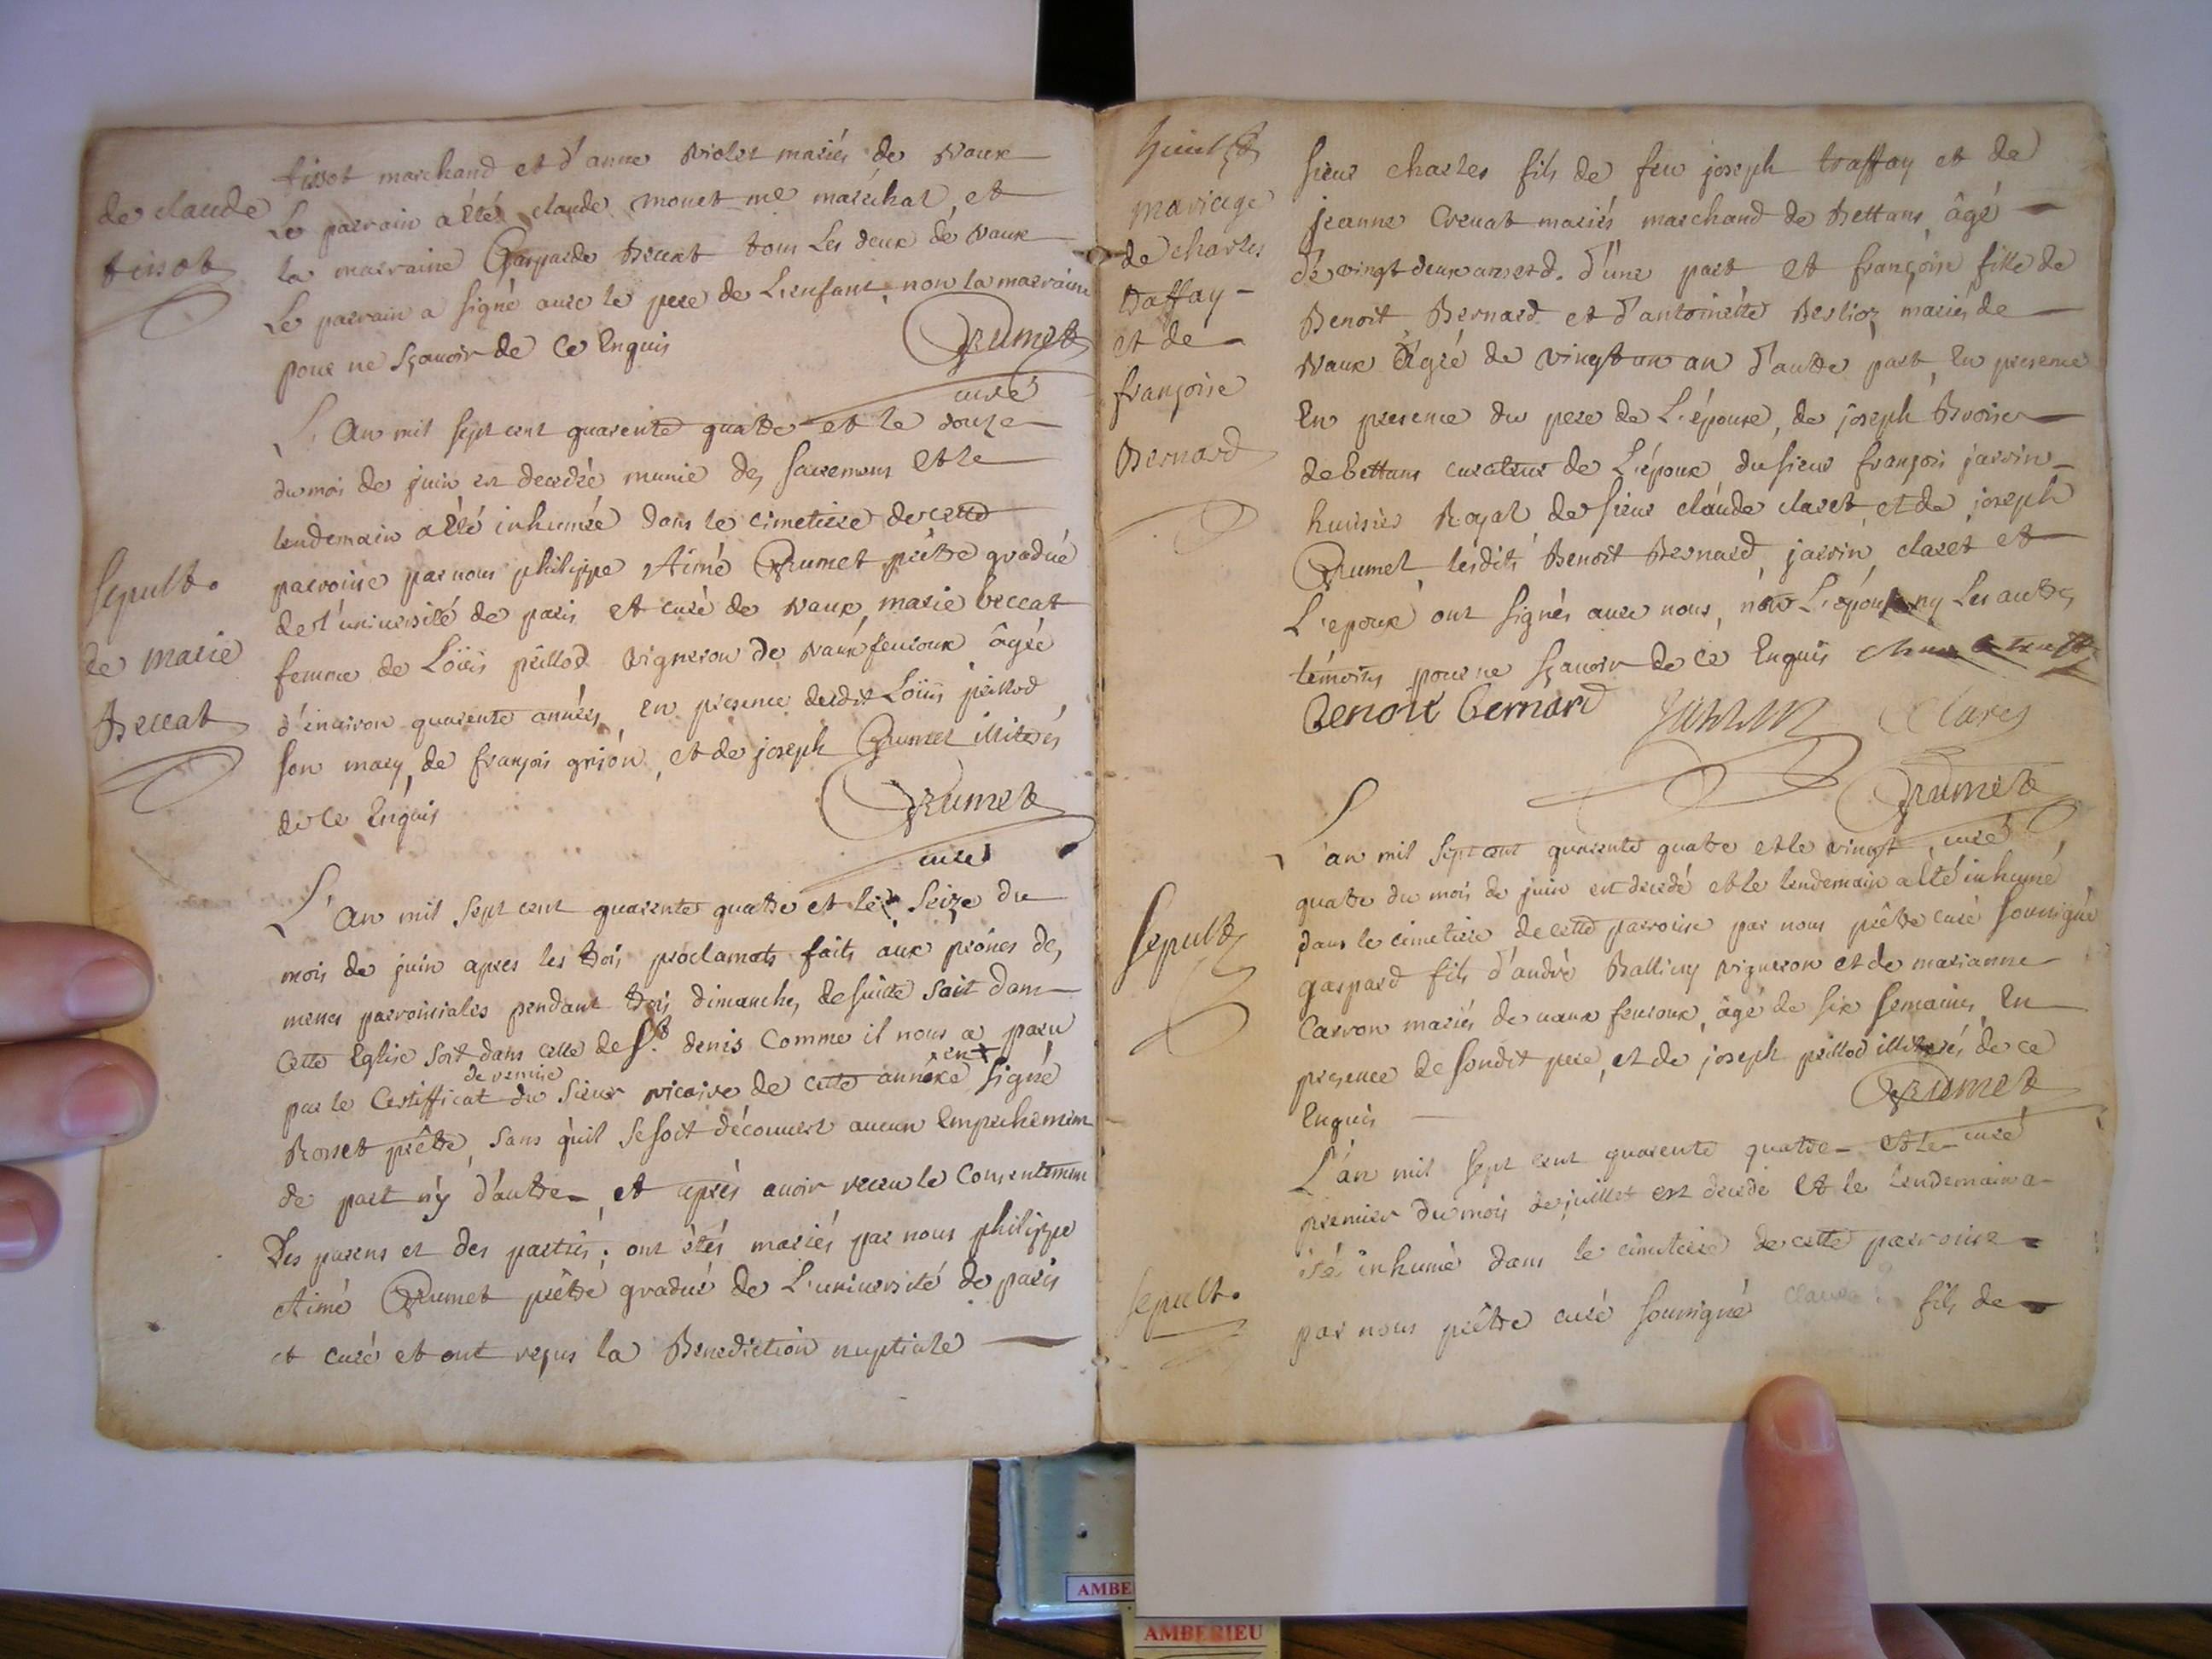 de claude
tissot
tissot marchand et d'anne violet mariés de vaux
Le parrain a été claude monet me maréchal, et
la marraine Gasparde Beccat tous les deux de vaux
Le parrain a signé avec le pere de L'enfant, non la marraine
pour ne sçavoir de ce Enquis
Grumet
curé
L'An mil sept cent quarente quatre et le douze
du mois de juin est decedée munie des sacremens et le
lendemain a été inhumée dans le cimetiere de cette
parroisse par nous philippe Aimé Grumet prêtre gradué
de l'université de paris et curé de vaux, marie beccat
femme de Loüis peillod vigneron de vaux fevroux âgée
d'environ quarente années, en presence dudit Loüis peillod
son mary, de françois grison, et de joseph Grumet illiterés
de ce Enquis
Grumet
curé
sepult.
de marie
Beccat
L'An mil sept cent quarente quatre et le seize du
mois de juin apres les trois proclamats faits aux prônes des
messes parroissiales pendant trois dimanches de suitte soit dans
cette Eglise soit dans celle de St. denis comme il nous a paru
par le Certifficat de remise du sieur vicaire de cette annexe signé
Rosset prêtre, sans qu'il se soit découvert aucun Empechement
de part n'y d'autre, et après avoir receu le Consentement
Des parens et des parties; ont étés mariés par nous philippe
Aimé Grumet prêtre gradué de L'université de paris
et curé et ont reçus la Benediction nuptiale
mariage
de charles
traffay
et de
françoise
Bernard
sieur charles fils de feu joseph traffay et de
jeanne Crevat mariés marchand de Bettans, âgé
de vingt deux ans et d. d'une part et françoise fille de
Benoit Bernard et d'antoinette Berlioz mariés de
vaux âgée de vingt un an d'autre part, En presence
En presence du pere de L'épouse, de joseph Bvoiser
de bettans curateur de L'époux du sieur françois jarrin
huissier Royal de sieur claude claret, et de joseph
Grumet, lesdits Benoit Bernard, jarrin, claret et
L'epoux ont signés avec nous, non L'épouse ny Les autres
témoins pour ne sçavoir de ce Enquis
Benoit Bernard Jarrin Claret
Grumet
curé
L'an mil sept cent quarente quatre et le vingt
quatre du mois de juin est decedé et le lendemain a été inhumé
dans le cimetiere de cette parroisse par nous prêtre curé soussigné
gaspard fils d'andré Ballivy vigneron et de marianne
Carron mariés de vaux fevroux, âgé de six semaines, En
presence de sondit pere, et de joseph peillod illiterés de ce
Enquis
Grumet
curé
sepult
L'an mil sept cent quarente quatre et le
premier du mois de juillet est decedé et le lendemain a
été inhumé dans le cimetiere de cette parroisse
par nous prêtre curé soussigné claude fils de
sepult.
AMBE
AMBERIEU